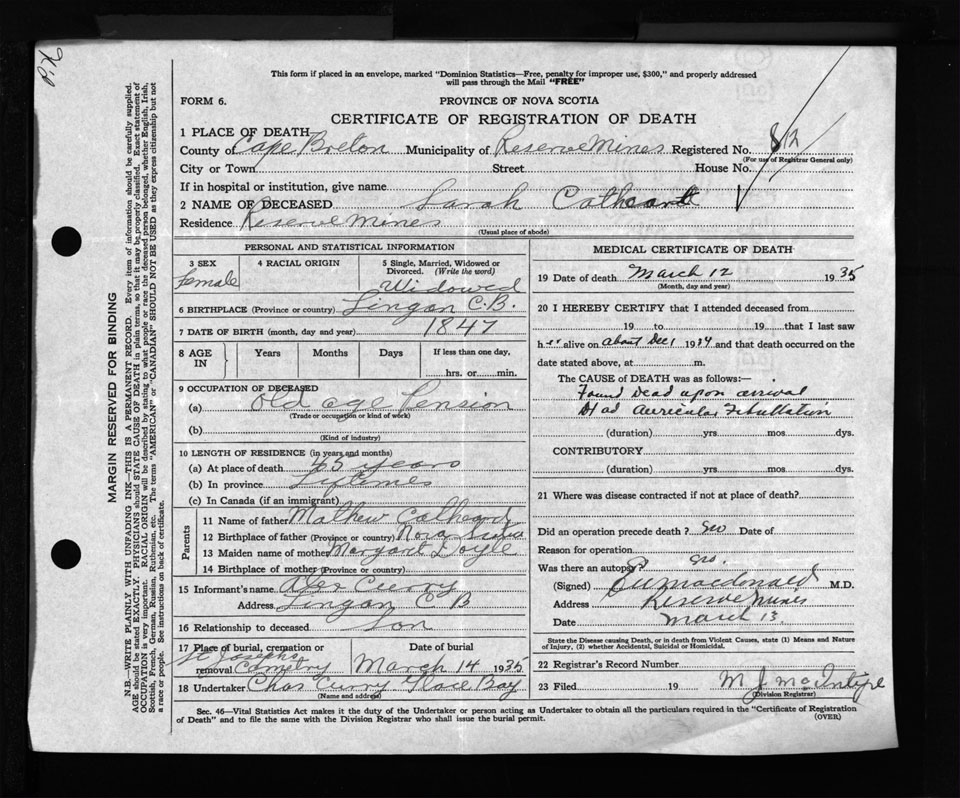 This form if placed in an envelope, marked "Dominion Statistics—Free, penalty for improper use, $300," and properly addressed
will pass through the Mail "FREE"
FORM 6. PROVINCE OF NOVA SCOTIA
CERTIFICATE OF REGISTRATION OF DEATH
1 PLACE OF DEATH
County of Cape Breton Municipality of Reserve Mines Registered No. 812
(For use of Registrar General only)
City or Town Street House No.
If in hospital or institution, give name
2 NAME OF DECEASED Sarah
Residence Reserve Mines
(Usual place of abode)
PERSONAL AND STATISTICAL INFORMATION
3 SEX 4 RACIAL ORIGIN 5 Single, Married, Widowed or Divorced. (Write the word)
Female Widowed
6 BIRTHPLACE (Province or country) Lingan C.B.
7 DATE OF BIRTH (month, day and year) 1847
8 AGE IN Years Months Days If less than one day,
hrs. or min.
9 OCCUPATION OF DECEASED
(a) Old age Pension
(Trade or occupation or kind of work)
(b)
(Kind of industry)
10 LENGTH OF RESIDENCE (in years and months)
(a) At place of death years
(b) In province
(c) In Canada (if an immigrant)
Parents
11 Name of father Mathew
12 Birthplace of father (Province or country) Nova Scotia
13 Maiden name of mother Margaret Doyle
14 Birthplace of mother (Province or country)
15 Informant's name Alex Curry
Address Lingan C B
16 Relationship to deceased Son
17 Place of burial, cremation or removal Date of burial
St Josephs Cemetry March 14 1935
18 Undertaker Chas Curry Glace Bay
(Name and address)
MEDICAL CERTIFICATE OF DEATH
19 Date of death March 12 1935
(Month, day and year)
20 I HEREBY CERTIFY that I attended deceased from
19 to 19 that I last saw
her alive on About Dec 1934 and that death occurred on the
date stated above, at m.
The CAUSE OF DEATH was as follows:—
Found Dead upon arrival
Had Auricular Fibullation
(duration) yrs mos dys.
CONTRIBUTORY
(duration) yrs mos dys.
21 Where was disease contracted if not at place of death?
Did an operation precede death? Date of
Reason for operation
Was there an autopsy?
(Signed) Macdonald M.D.
Address Reserve Mines
Date March 13.
State the Disease causing Death, or in death from Violent Causes, state (1) Means and
Nature of Injury, (2) whether Accidental, Suicidal or Homicidal.
22 Registrar's Record Number
23 Filed 19 M J McIntyre
(Division Registrar)
Sec. 46—Vital Statistics Act makes it the duty of the Undertaker or person acting as Undertaker to obtain all the particulars required in the "Certificate of Registration
of Death" and to file the same with the Division Registrar who shall issue the burial permit. (OVER)
MARGIN RESERVED FOR BINDING
N.B.—WRITE PLAINLY WITH UNFADING INK—THIS IS A PERMANENT RECORD. Every item of information should be carefully supplied.
AGE should be stated EXACTLY. PHYSICIANS should STATE CAUSE OF DEATH in plain terms, so that it may be properly classified. Exact statement of
OCCUPATION is very important. RACIAL ORIGIN will be described by stating to what people or race the deceased person belonged, whether English, Irish,
Scottish, French, German, Russian, Ruthenian, etc. The terms "AMERICAN" or "CANADIAN" SHOULD NOT BE USED as they express citizenship but not
a race or people. See instructions on back of certificate.